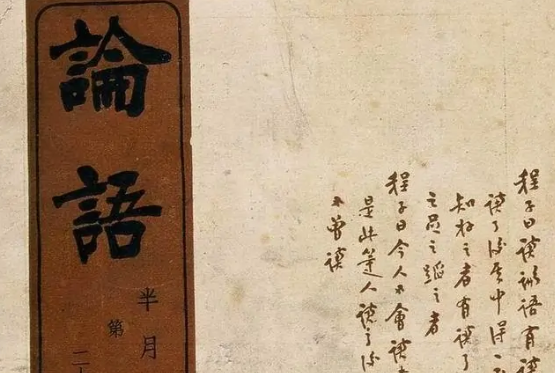 論語
半月
第
二
程子曰讀論語有讀
讀了後其中得一
知好之者有讀了
之足之蹈之者
程子曰今人不會讀
是此等人讀了後
不曾讀